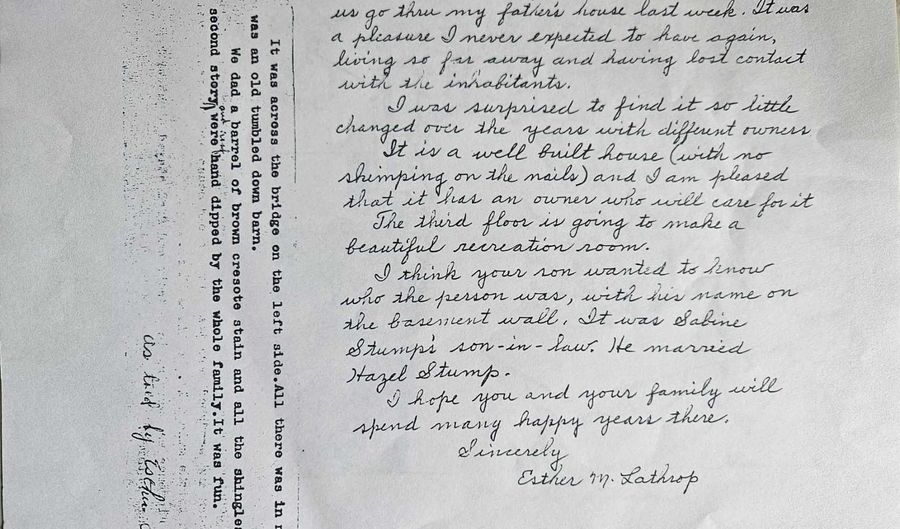 us go thru my father's house last week. It was
a pleasure I never expected to have again,
living so far away and having lost contact
with the inhabitants.
I was surprised to find it so little
changed over the years with different owners
It is a well built house (with no
skimping on the nails) and I am pleased
that it has an owner who will care for it
The third floor is going to make a
beautiful recreation room.
I think your son wanted to know
who the person was, with his name on
the basement wall. It was Sabine
Stump's son-in-law. He married
Hazel Stump.
I hope you and your family will
spend many happy years there.
Sincerely
Esther M. Lathrop
It was across the bridge on the left side.All there was in
was an old tumbled down barn.
We dad a barrel of brown cresote stain and all the shingles
second story were hand dipped by the whole family.It was fun.
as told by Esther